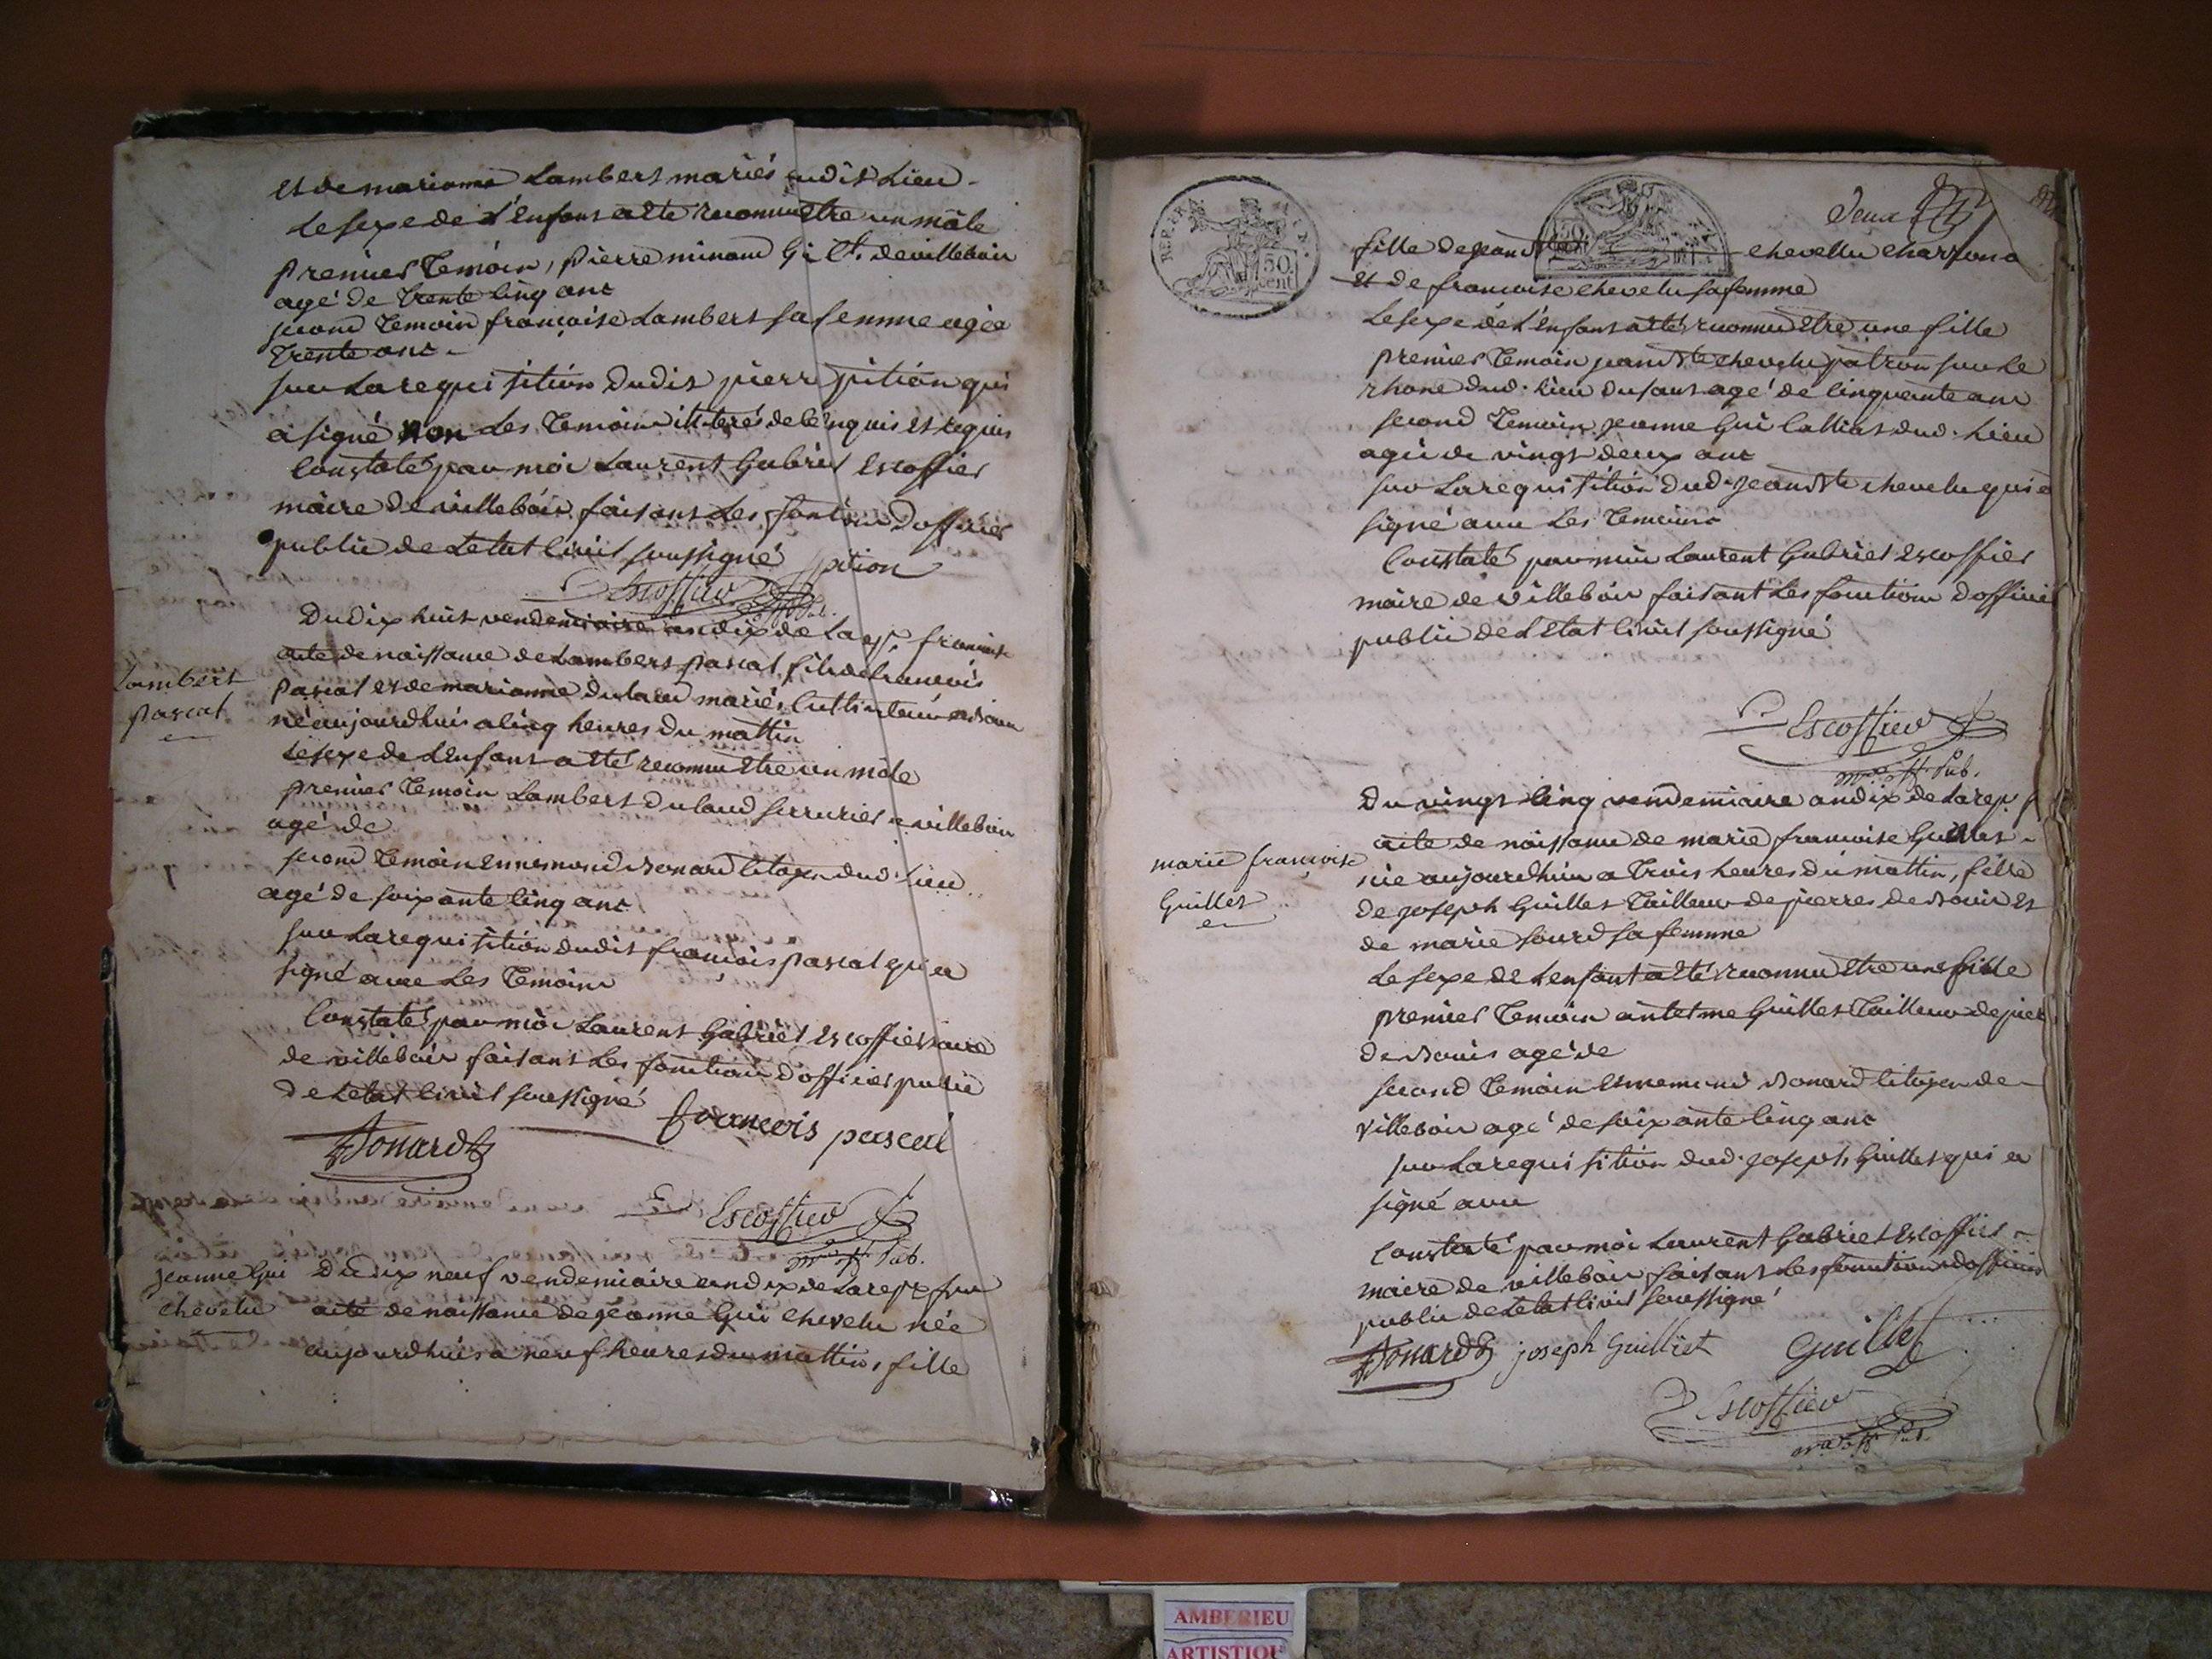 et de marianne Lambert mariés audit Lieu.
Le sexe de L'Enfant a ete reconnu Etre un mâle
premier Temoin, pierre minand Gi C.t de villebois
agé de trente cinq ans
second Temoin françoise Lambert sa femme agée
trente ans.
sur La requisition dudit pierre pition qui
a signé non Les Temoins de ce enquis et requis
Constaté par moi Laurent Gabriel Escoffier
maire de villebois faisant Les fontions d'officier
public de Letat Civil soussigné pition
Escoffier
Du dix huit vendemiaire an dix de La rep. francaise
Lambert
pascal
acte de naissance de Lambert pascal fils de francois
pascal et de marianne dulaud mariés Cultivateurs a
né aujourdhui a cinq heures du mattin
Le sexe de L'Enfant a eté reconnu Etre un mâle
premier Temoin Lambert dulaud serrurier a villebois
agé de
second Temoin Ennemond Bonard citoyen dud. Lieu
agé de soixante cinq ans
sur La requisition dudit francois pascal qui a
signé avec Les Temoins
Constaté par moi Laurent Gabriel Escoffier maire
de villebois faisant Les fonctions d'officier public
de Letat Civil soussigné
françois pascal
Bonard
Escoffier
m.re off. Pub.
jeanne Gui
chevelu
Du dix neuf vendemiaire an dix de La rep. fra
acte de naissance de jeanne Gui chevelu née
aujourdhui a neuf heures du mattin, fille
Deux
REP. FRA.
50
cent
fille de jean Bte chevellu charron a
et de francoise chevelu sa femme
Le sexe de L'enfant a eté reconnu Etre une fille
premier Temoin jean Bte chevelu patron sur Le
rhone dud. Lieu du saut agé de cinquante ans
second Temoin jeanne Gui Callias dud. Lieu
agée de vingt deux ans
sur La requisition dud. jean Bte chevelu qui a
signé avec Les Temoins
Constaté par moi Laurent Gabriel Escoffier
maire de villebois faisant Les fonctions d'officier
public de L'Etat Civil soussigné
Escoffier
m.re off. Pub.
Du vingt cinq vendemiaire an dix de La rep. f
marie françoise
Guillet
acte de naissance de marie francoise Guillet
née aujourdhui a trois heures du mattin, fille
de joseph Guillet Tailleur de pierres de Bouis et
de marie sourd sa femme
Le sexe de L'enfant a eté reconnu Etre une fille
premier Temoin antelme Guillet Tailleur de pier
de Bouis agé de
second Temoin Ennemond Bonard citoyen de
villebois agé de soixante cinq ans
sur La requisition dud. joseph Guillet qui a
signé avec
Constaté par moi Laurent Gabriel Escoffier
maire de villebois faisant Les fonctions d'officier
public de Letat Civil soussigné
Bonard joseph Guilliet Guillet
Escoffier
m.re off. Pub.
AMBERIEU
ARTISTIQU